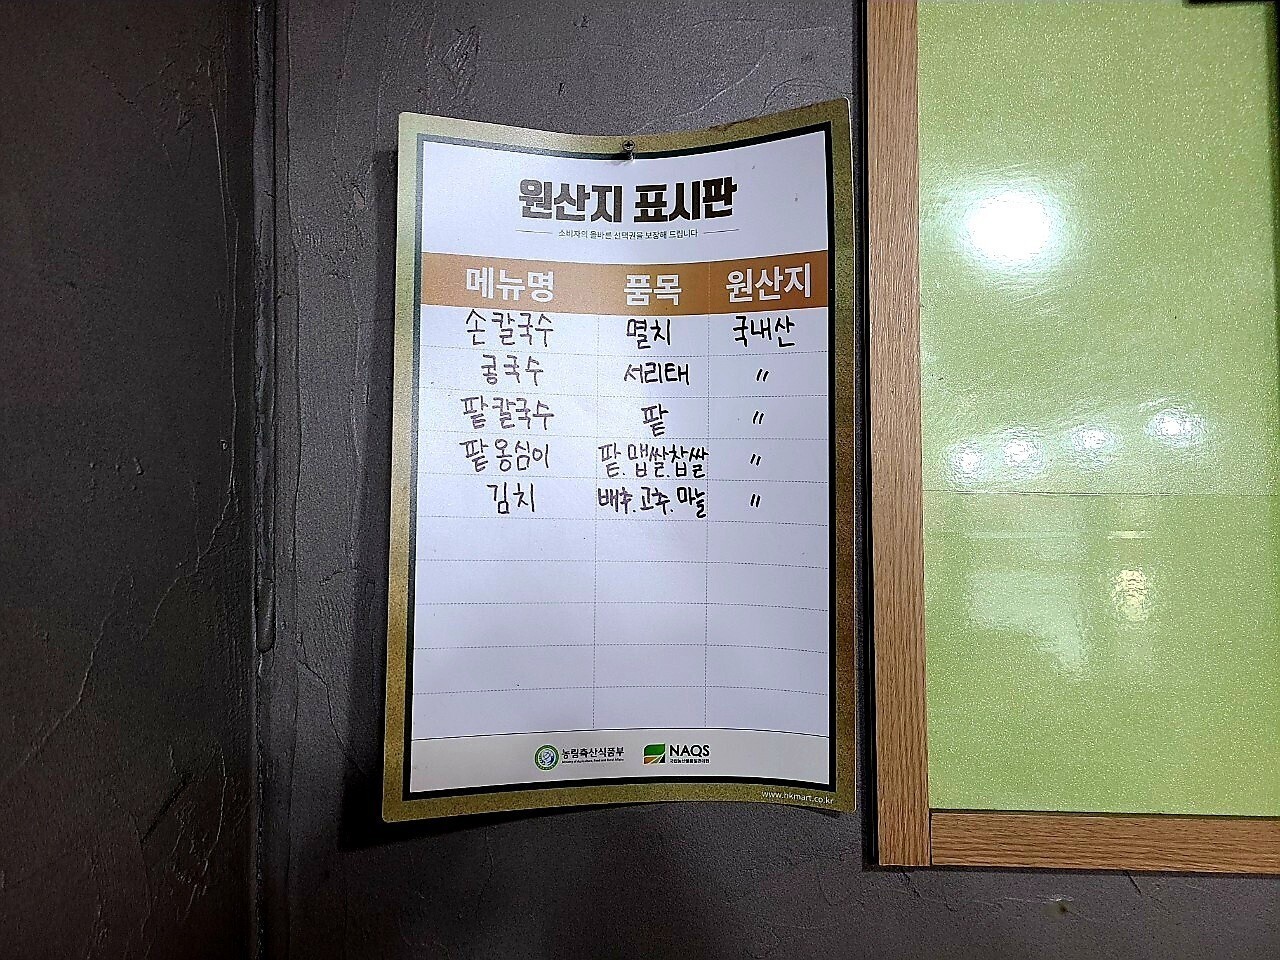 원산지 표시판
소비자의 올바른 선택권을 보장해 드립니다
메뉴명 품목 원산지
손칼국수 멸치 국내산
콩국수 서리태 〃
팥칼국수 팥 〃
팥옹심이 팥.맵쌀.찹쌀 〃
김치 배추.고추.마늘 〃
농림축산식품부 NAQS
Ministry of Agriculture, Food and Rural Affairs 국립농산물품질관리원
www.hkmart.co.kr